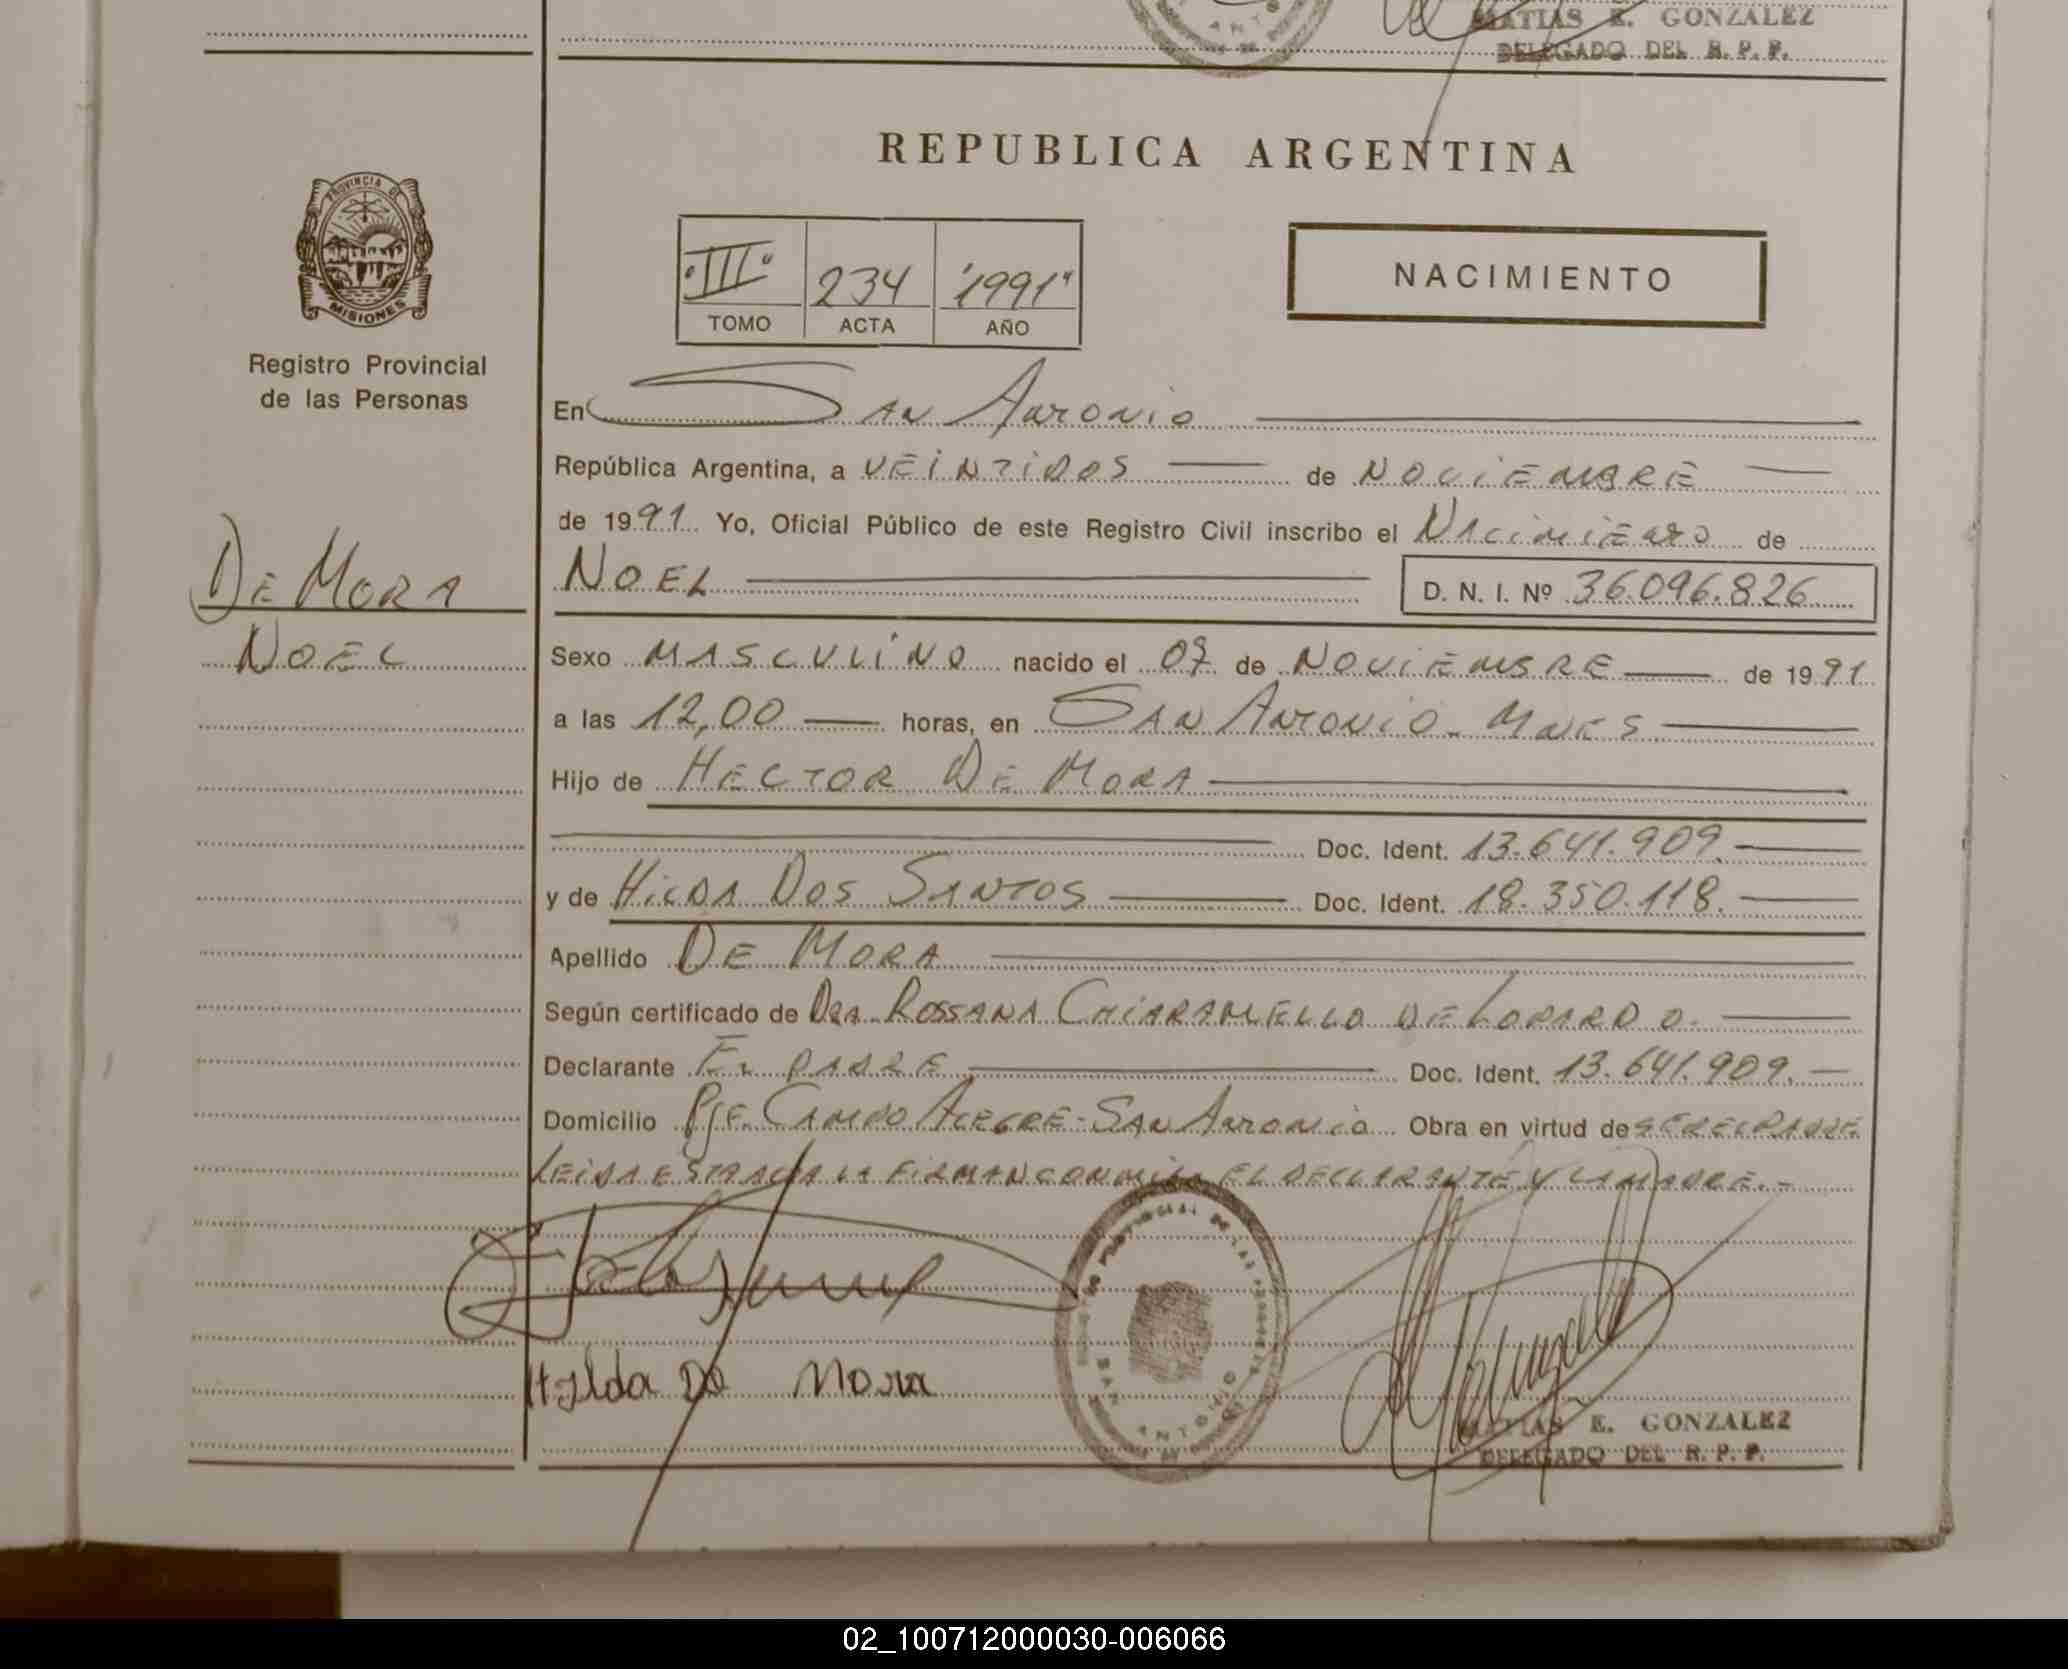 MATIAS E. GONZALEZ
DELEGADO DEL R. P. P.
REPUBLICA ARGENTINA
PROVINCIA DE
MISIONES
Registro Provincial
de las Personas
"III" 234 "1991"
TOMO ACTA AÑO
NACIMIENTO
En SAN ANTONIO
República Argentina, a VEINTIDOS de NOVIEMBRE
de 1991 Yo, Oficial Público de este Registro Civil inscribo el NACIMIENTO de
DE MORA
NOEL
NOEL D. N. I. Nº 36.096.826
Sexo MASCULINO nacido el 07 de NOVIEMBRE de 1991
a las 12,00 horas, en SAN ANTONIO - MNES
Hijo de HECTOR DE MORA
Doc. Ident. 13.641.909.
y de HILDA DOS SANTOS Doc. Ident. 18.350.118.
Apellido DE MORA
Según certificado de DRA. ROSSANA CHIARAMELLO DE LOPARDO.
Declarante EL PADRE Doc. Ident. 13.641.909.
Domicilio PJE. CAMPO ALEGRE - SAN ANTONIO Obra en virtud de SER EL PADRE
LEIDA ESTA ACTA LA FIRMAN CONMIGO EL DECLARANTE Y LA MADRE.-
Hilda De Mora
SAN ANTONIO
MATIAS E. GONZALEZ
DELEGADO DEL R. P. P.
02_100712000030-006066